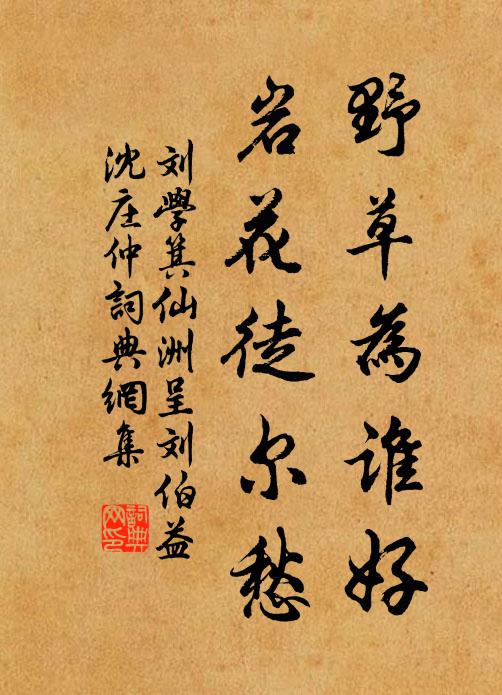 野草為谁好
岩花徒尔愁
刘學箕仙洲呈刘伯益
沈庄仲詞典網集
詞典
网印